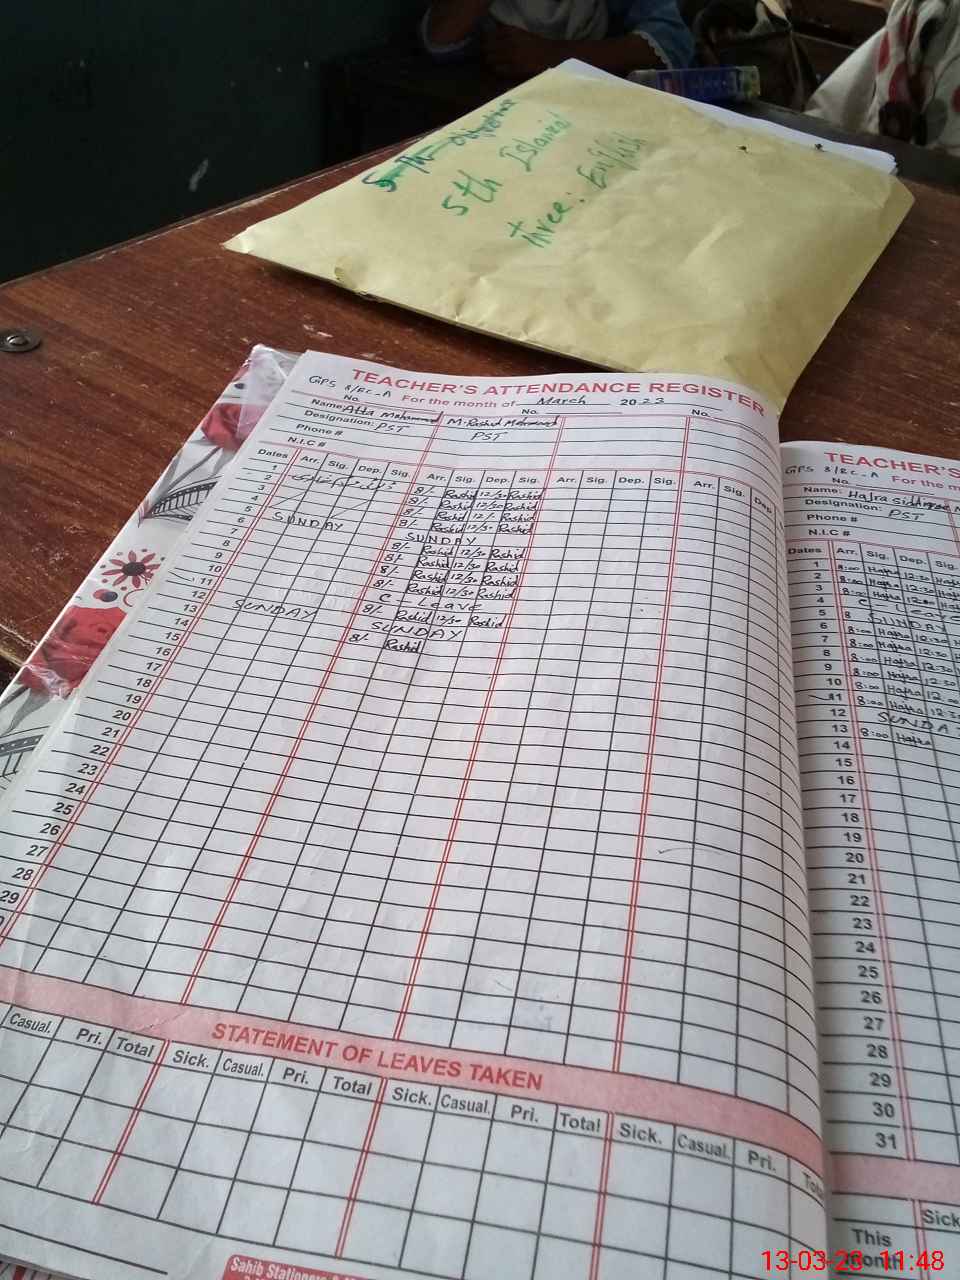 5th Islamiat
three: English
TEACHER'S ATTENDANCE REGISTER
GPS 8/RC-A
For the month of March 2023
No. No. No.
Name: Atta Mohammad M. Rashid Mehmood
Designation: PST PST
Phone #
N.I.C #
Dates Arr. Sig. Dep. Sig. Arr. Sig. Dep. Sig. Arr. Sig. Dep. Sig. Arr. Sig. Dep.
1 8/- Rashid 12/30 Rashid
2 8/- Rashid 12/30 Rashid
3 8/- Rashid 12/- Rashid
4 8/- Rashid 12/30 Rashid
5 SUNDAY SUNDAY
6 8/- Rashid 12/30 Rashid
7 8/- Rashid 12/30 Rashid
8 8/- Rashid 12/30 Rashid
9 8/- Rashid 12/30 Rashid
10 C - Leave
11 8/- Rashid 12/30 Rashid
12 SUNDAY SUNDAY
13 8/- Rashid
14
15
16
17
18
19
20
21
22
23
24
25
26
27
28
29
STATEMENT OF LEAVES TAKEN
Casual. Pri. Total Sick. Casual. Pri. Total Sick. Casual. Pri. Total Sick. Casual. Pri.
Sahib Stationers &
TEACHER'S
GPS 8/RC-A
No. For the m
Name: Hafra Siddique
Designation: PST
Phone #
N.I.C #
Dates Arr. Sig. Dep. Sig.
1 8:00 Hafra 12:30
2 8:00 Hafra 12:30
3 8:00 Hafra 12:30
4 C - Leave
5 SUNDAY
6 8:00 Hafra 12:30
7 8:00 Hafra 12:30
8 8:00 Hafra 12:30
9 8:00 Hafra 12:30
10 8:00 Hafra 12:00
11 8:00 Hafra 12:30
12 SUNDAY
13 8:00 Hafra
14
15
16
17
18
19
20
21
22
23
24
25
26
27
28
29
30
31
Sick
This
month
13-03-23 11:48